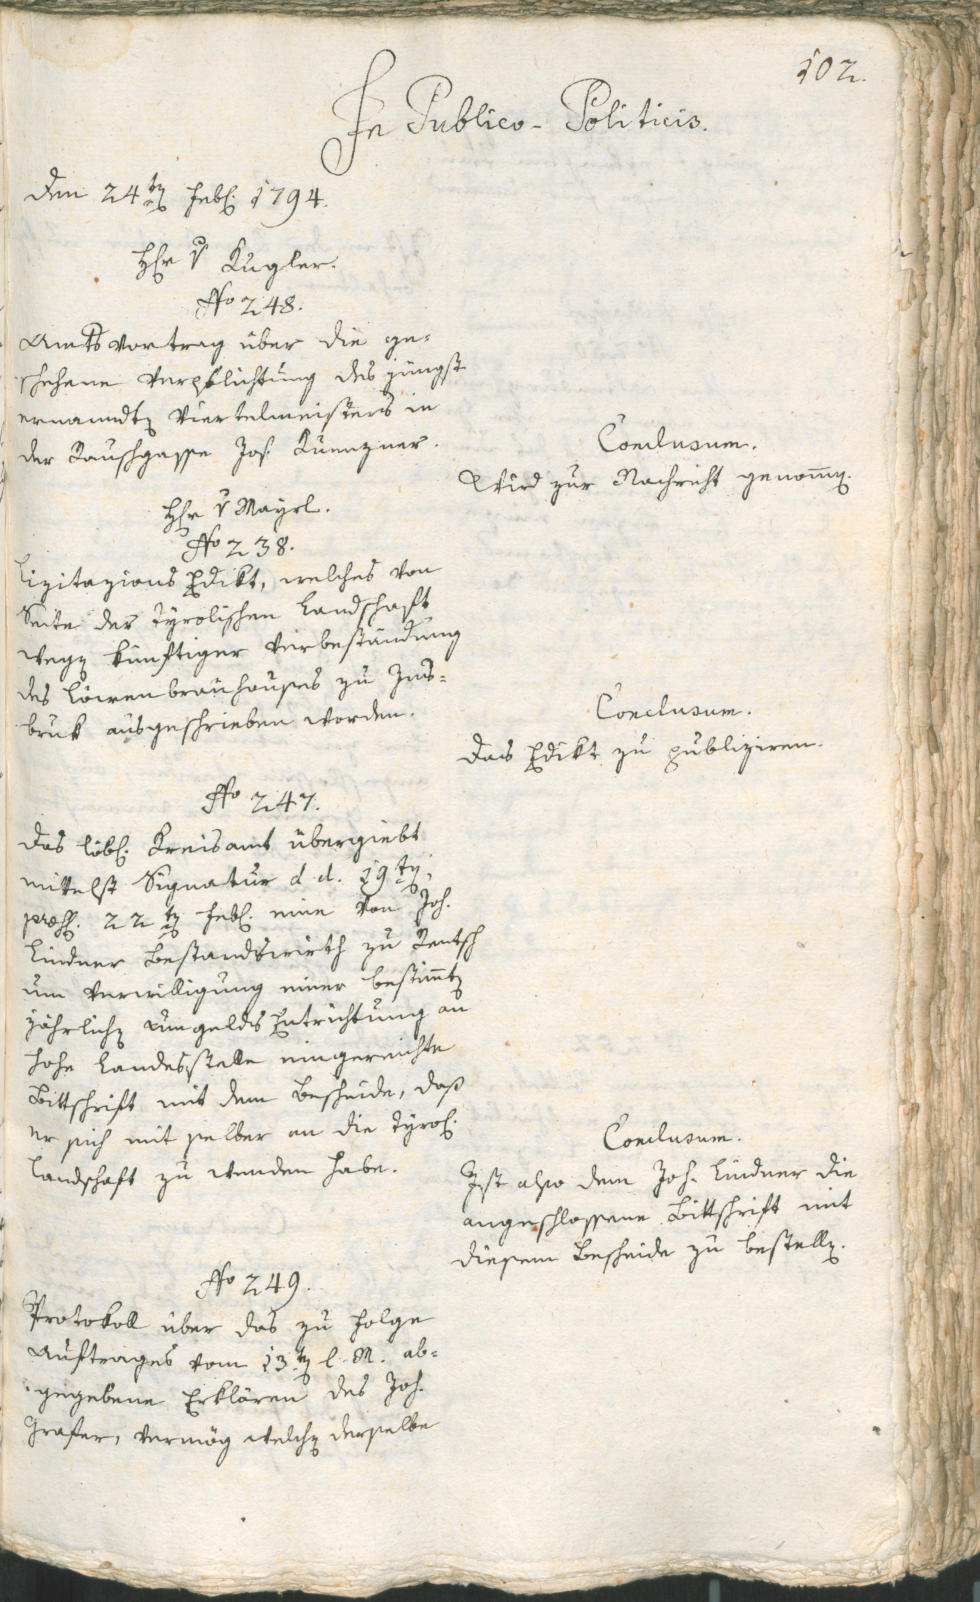 102.
In Publico-Politicis.
Den 24ten Febr: 1794.
Hr v Kugler.
No 248.
Amtsvortrag über die ge-
schehene Verpflichtung des jüngst
ernanndten Viertelmeisters in
der Rauschgasse Jos: Kuenzner.
Conclusum.
Wird zur Nachricht genomen.
Hr v Mayrl.
No 238.
Lizitazions Edikt, welches von
Seite der Tyrolischen Landschaft
wegen künftiger Verbeständung
des Löwenbräuhauses zu Ins-
bruk ausgeschrieben worden.
Conclusum.
Das Edikt zu publiziren.
No 247.
Das löbl: Kreisamt übergiebt
mittelst Signatur d. d. 19ten,
præs: 22ten Febr: eine von Joh:
Lindner Bestandswirth zu Rentsch
um Verwilligung einer bestimten
jährlichen Umgelds Entrichtung an
hohe Landesstelle eingereichte
Bittschrift mit dem Bescheide, daß
er sich mit selber an die Tyrol:
Landschaft zu wenden habe.
Conclusum.
Ist also dem Joh: Lindner die
angeschlossene Bittschrift mit
diesem Bescheide zu bestellen.
No 249.
Protokoll über das zu Folge
Auftrages vom 13ten l. M. ab-
gegebene Erklären des Joh:
Grafer, vermög welchen derselbe